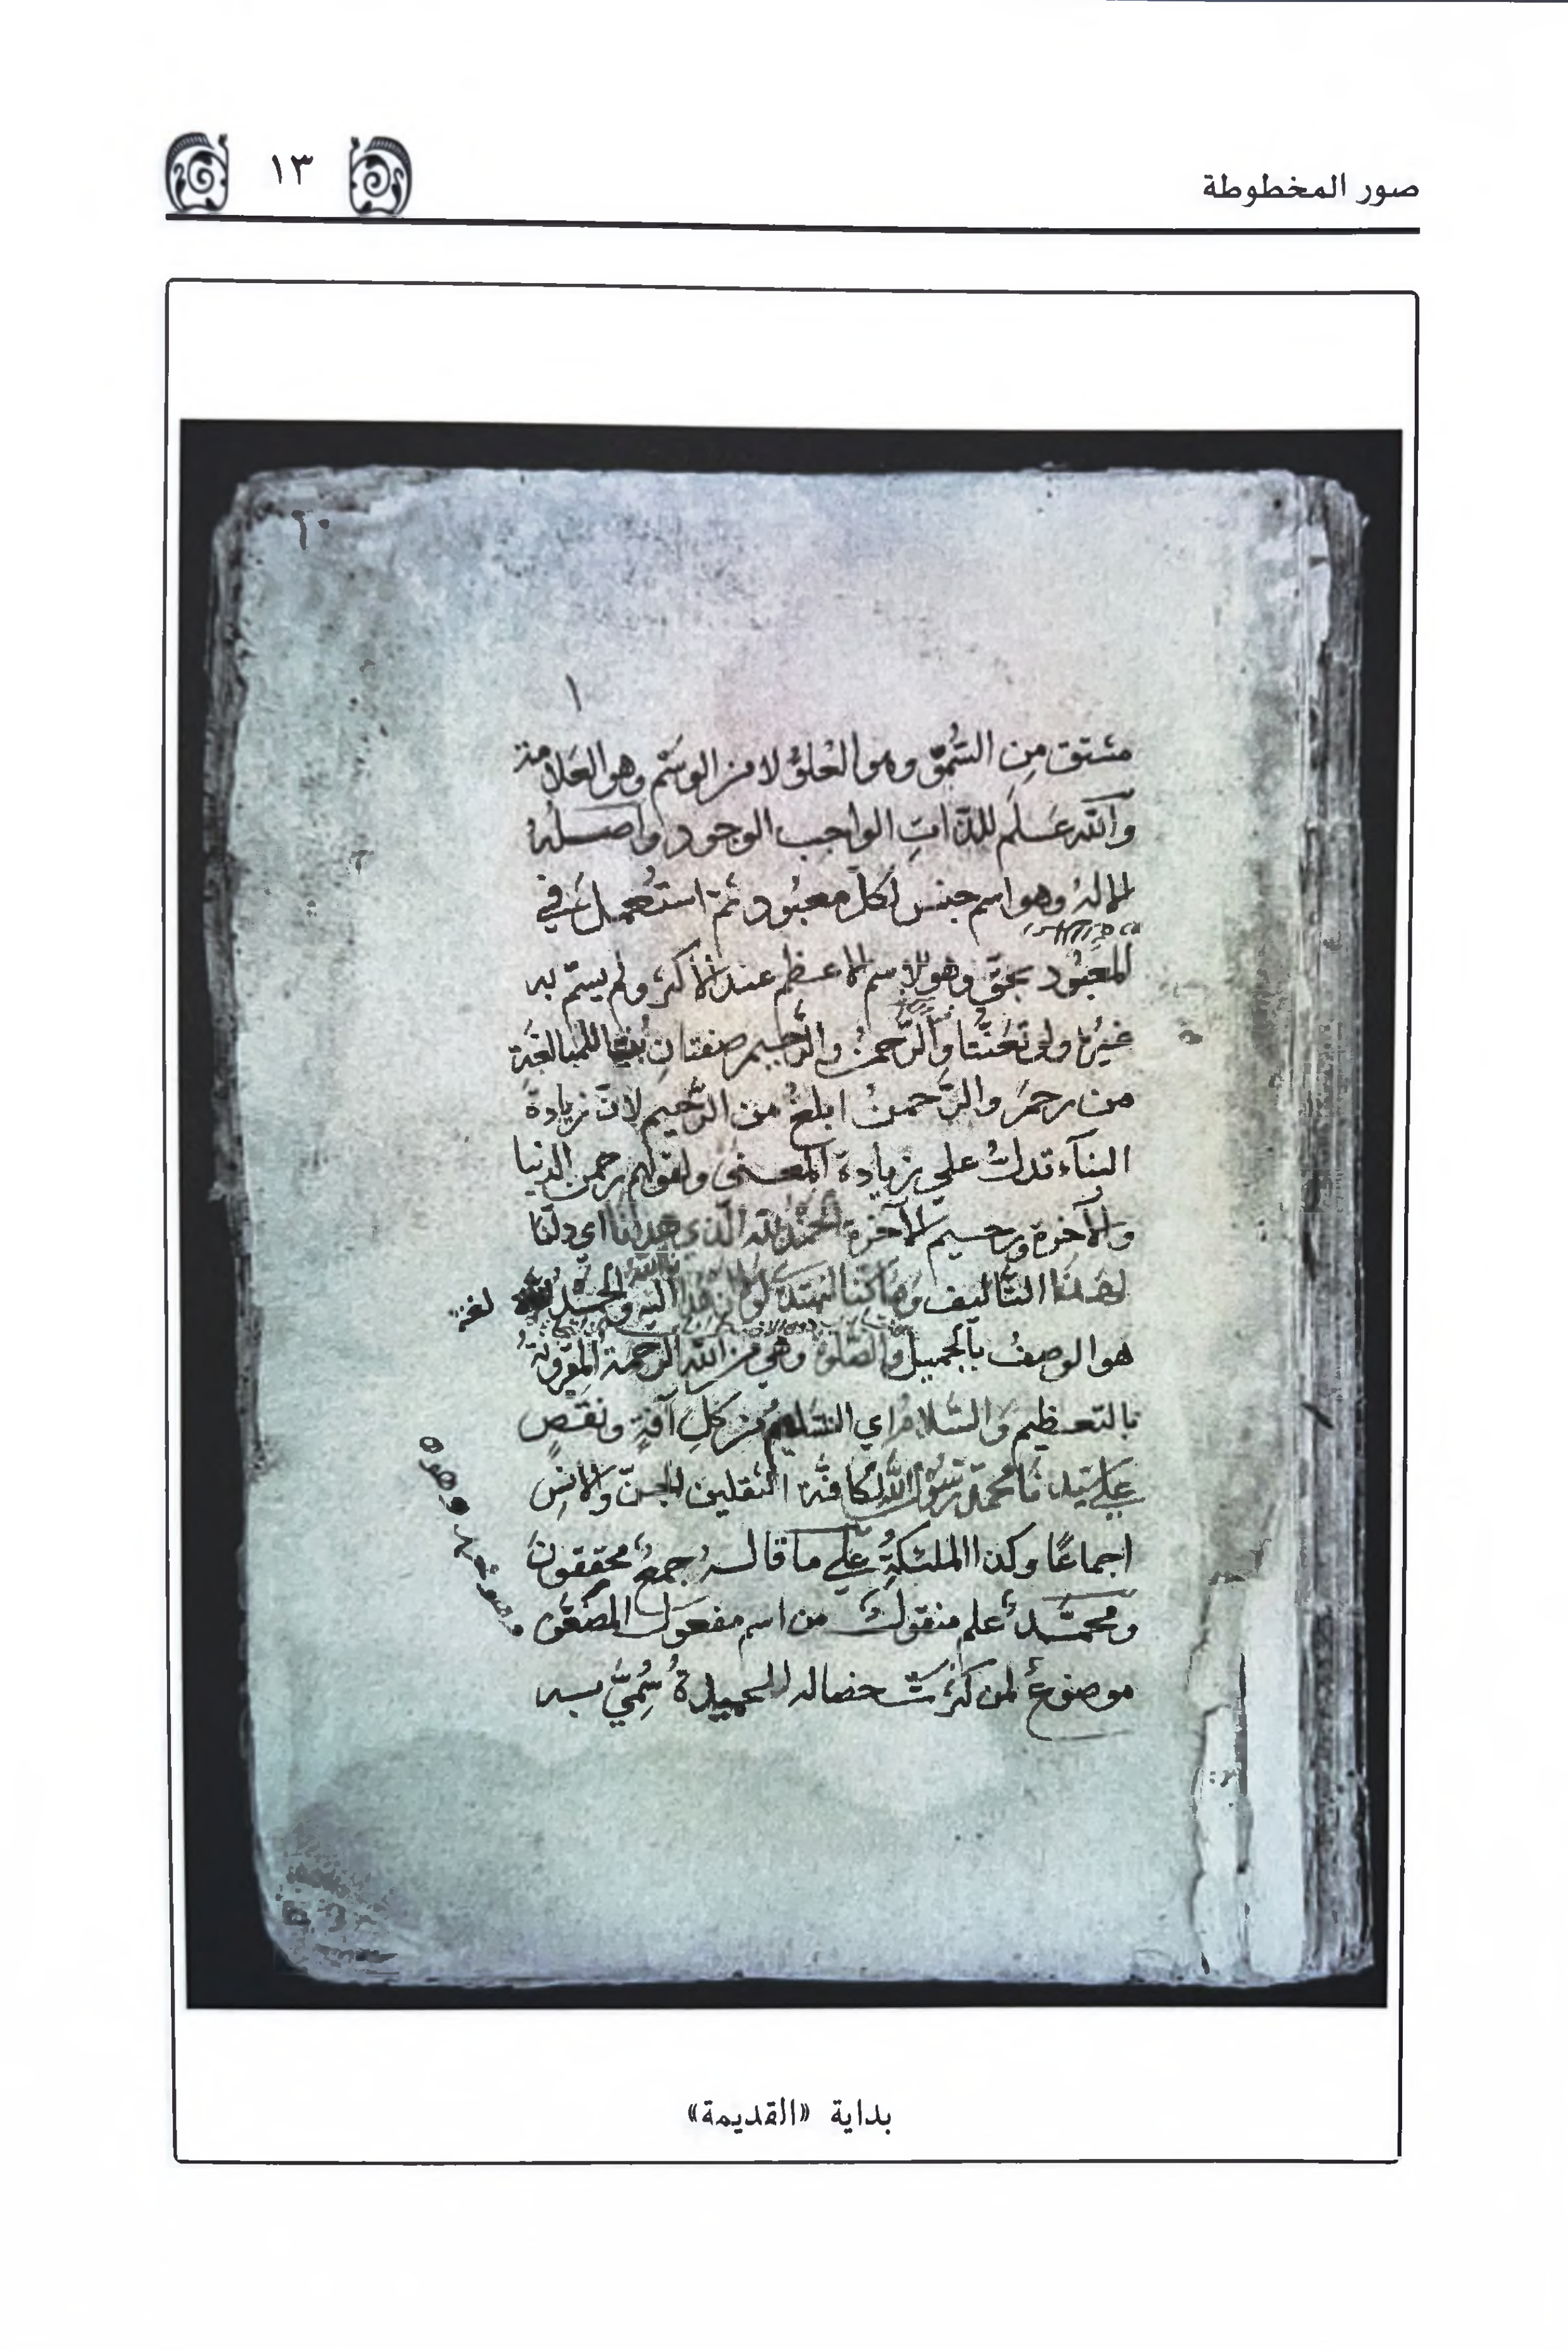 صور المخطوطة
١٣
٢٠
١
مشتق مِن السُّمُوّ وهو العُلُوُّ لا من الوسْم وهو العَلامة
والله عَلَم للذّاتِ الواجب الوجود واصله
الاله وهو اسم جنس لكل معبُود ثم استُعمل في
المعبُود بحق وهو الاسم الاعظم عند الأكثر ولم يسمّ به
غيره ولو تعنّتا والرّحمن والرّحيم صفتان للمبالغة
من رحم والرّحمنُ ابلغ من الرّحيم لانّ زيادة
البنآء تدلّ على زيادة المعنى ولقولهم رحمن الدنيا
والآخرة ورحيم الآخرة الحمد لله الّذي هدانا اي دلّنا
لهذا التأليف وما كنا لنهتدي لو اليه والحمد لغة
هو الوصفُ بالجميل والصّلوة وهي من الله الرّحمة المقرونة
بالتعظيم والسّلام اي التسليم من كل آفةٍ ونقصٍ
على سيّدنا محمّد رسول الله لكافة الثقلين الجنّ والانس
اجماعًا وكذا الملئكةُ على ما قاله جمعٌ محققون
ومحمّد علم منقول من اسم مفعول المضعّف
موضوعٌ لمن كثرت خصاله الحميدة سُمّيَ به
بداية «القديمة»